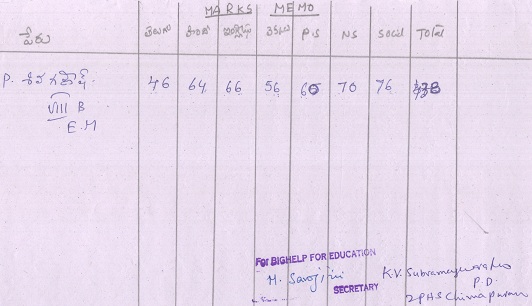 MARKS MEMO
పేరు తెలుగు హిందీ ఇంగ్లీషు లెక్కలు P.S N.S social Total
P. శివ గణేష్ 46 64 66 56 60 70 76 438
VIII B
E.M
For BIGHELP FOR EDUCATION
M. Sarojini
SECRETARY
K.V. Subrameswara Rao
P.D.
ZPHS Chinnapuram